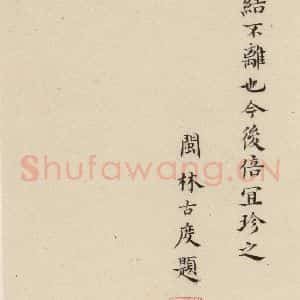 結不離也今後倍宜珍之
閩林古度題
Shufawang.CN